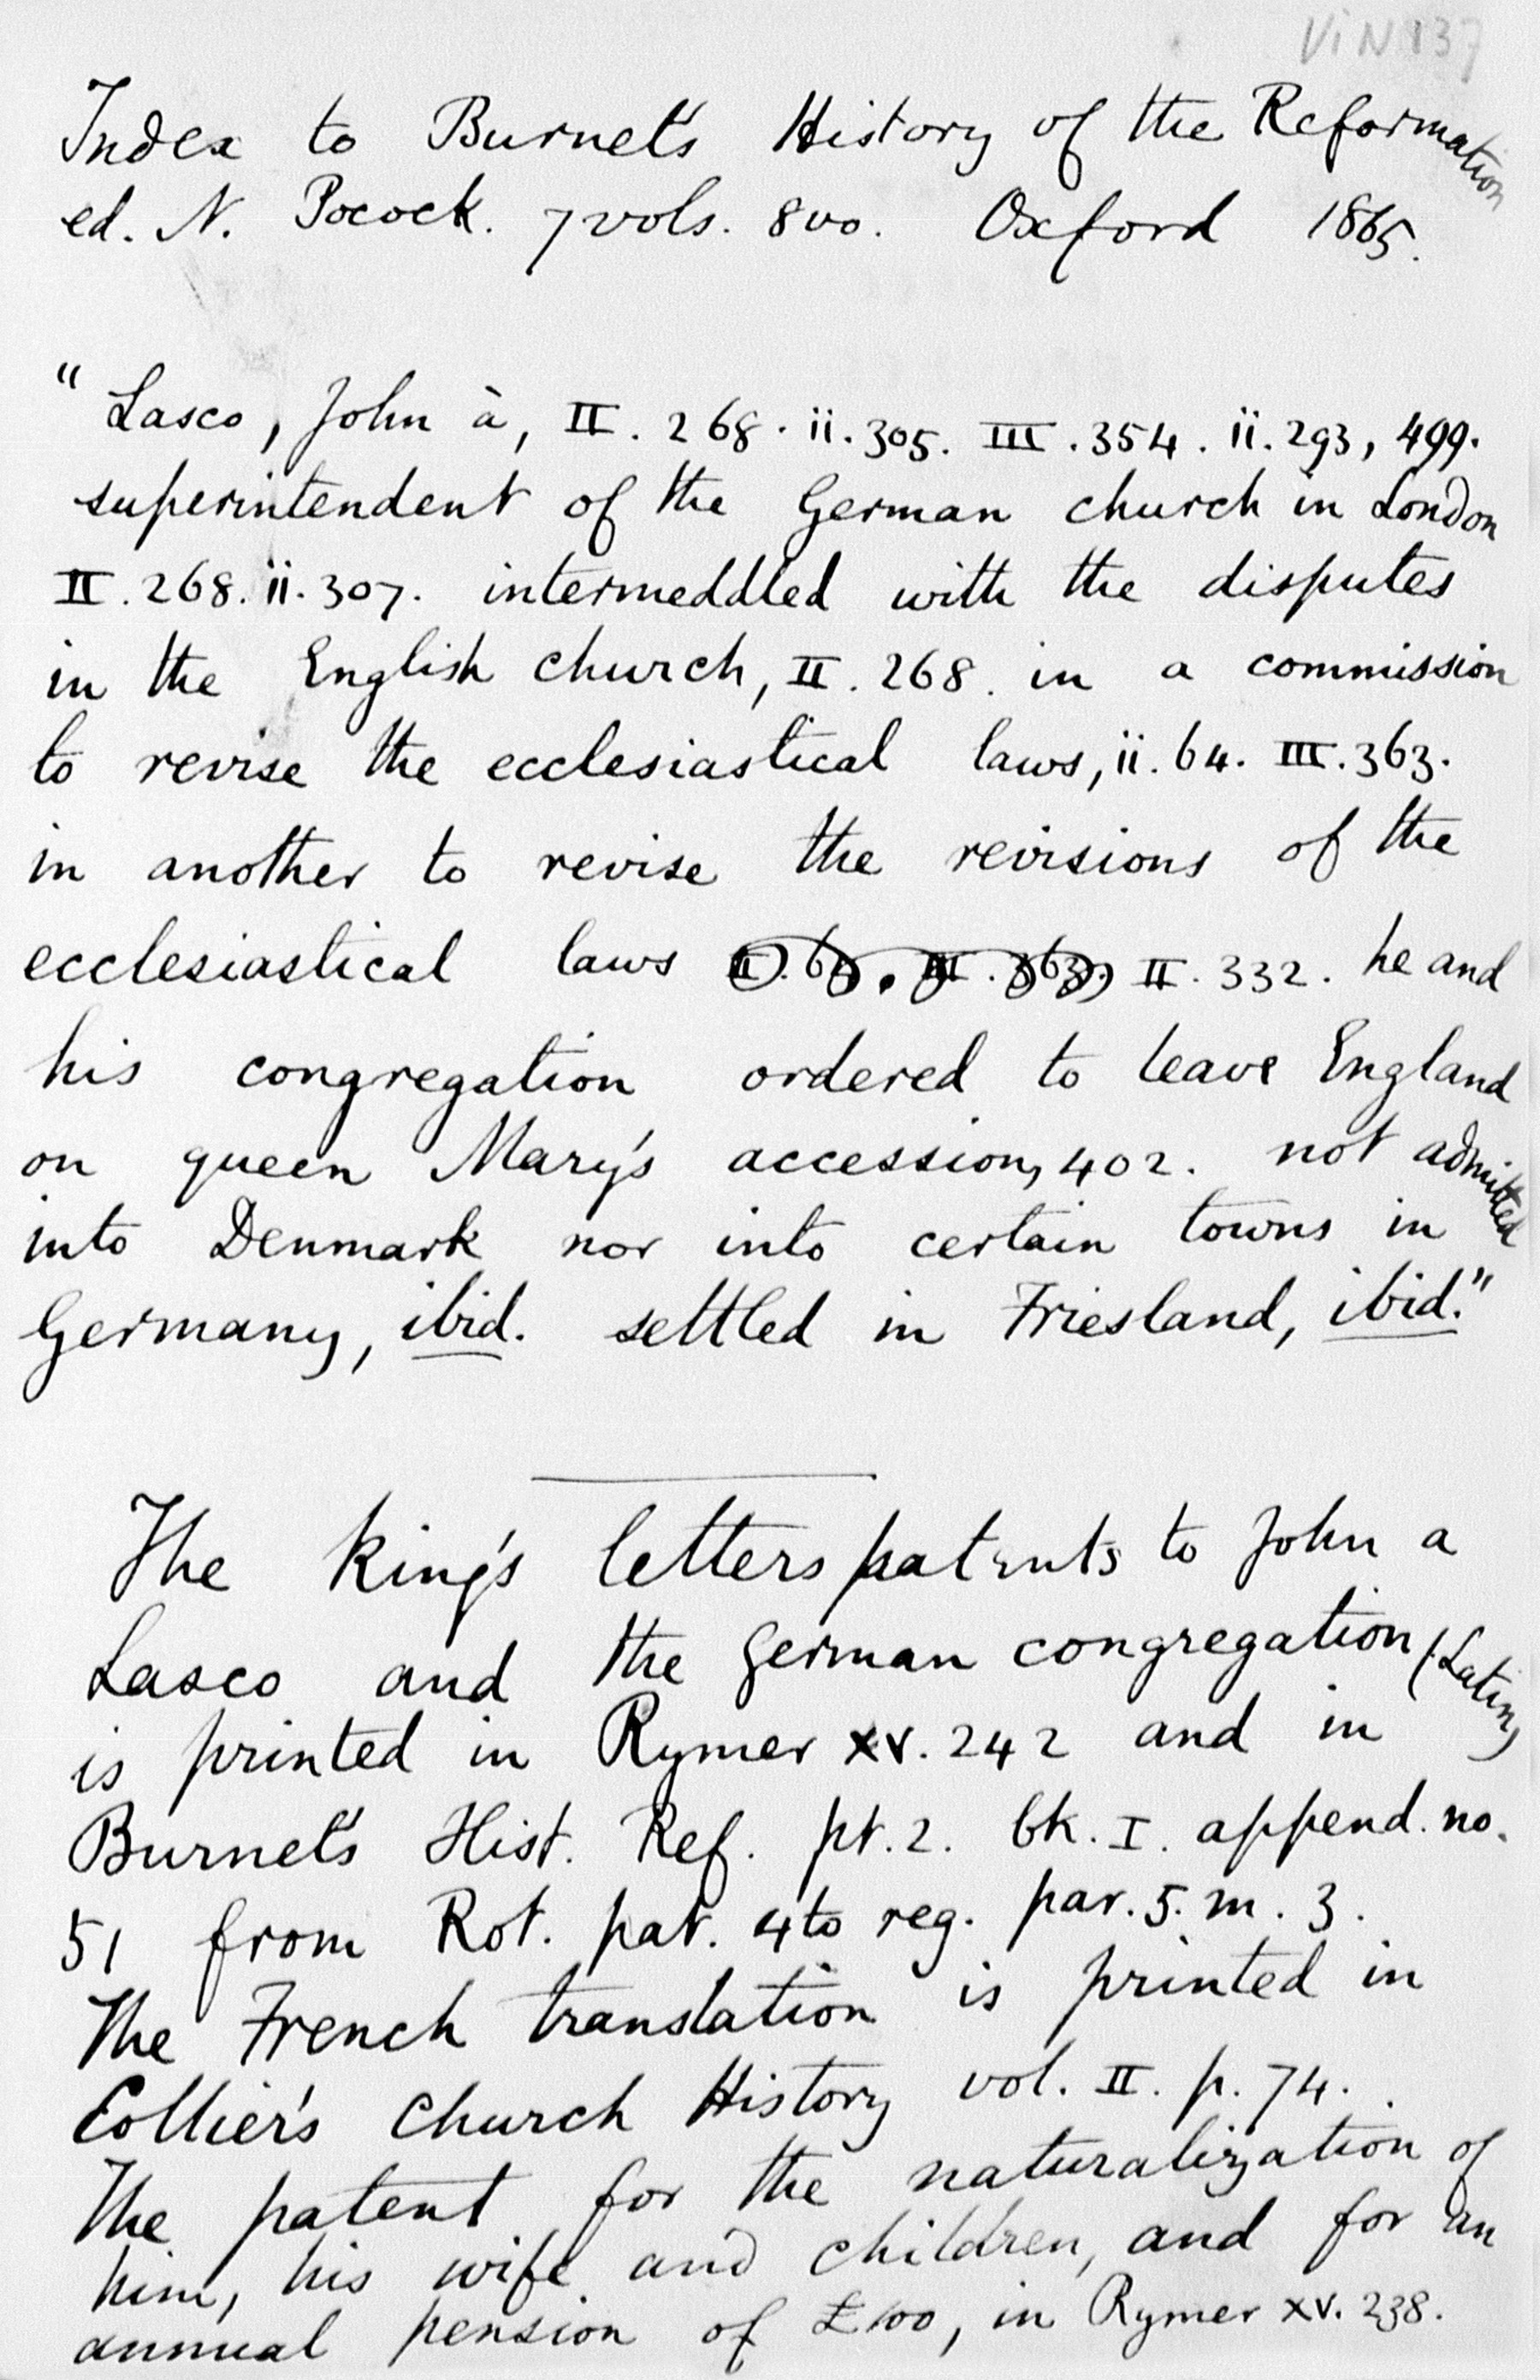 ViN 137
Index to Burnet's History of the Reformation
ed. N. Pocock. 7 vols. 8vo. Oxford 1865.
"Lasco, John à, II. 268. ii. 305. III. 354. ii. 293, 499.
superintendent of the German church in London
II. 268. ii. 307. intermeddled with the disputes
in the English church, II. 268. in a commission
to revise the ecclesiastical laws, ii. 64. III. 363.
in another to revise the revisions of the
ecclesiastical laws II. 332. he and
his congregation ordered to leave England
on queen Mary's accession, 402. not admitted
into Denmark nor into certain towns in
Germany, ibid. settled in Friesland, ibid."
The king's letters patents to John a
Lasco and the German congregation (Latin)
is printed in Rymer xv. 242 and in
Burnet's Hist. Ref. pt. 2. bk. I. append. no.
51 from Rot. pat. 4to reg. par. 5. m. 3.
The French translation is printed in
Collier's Church History vol. II. p. 74.
The patent for the naturalization of
him, his wife and children, and for an
annual pension of £100, in Rymer xv. 238.